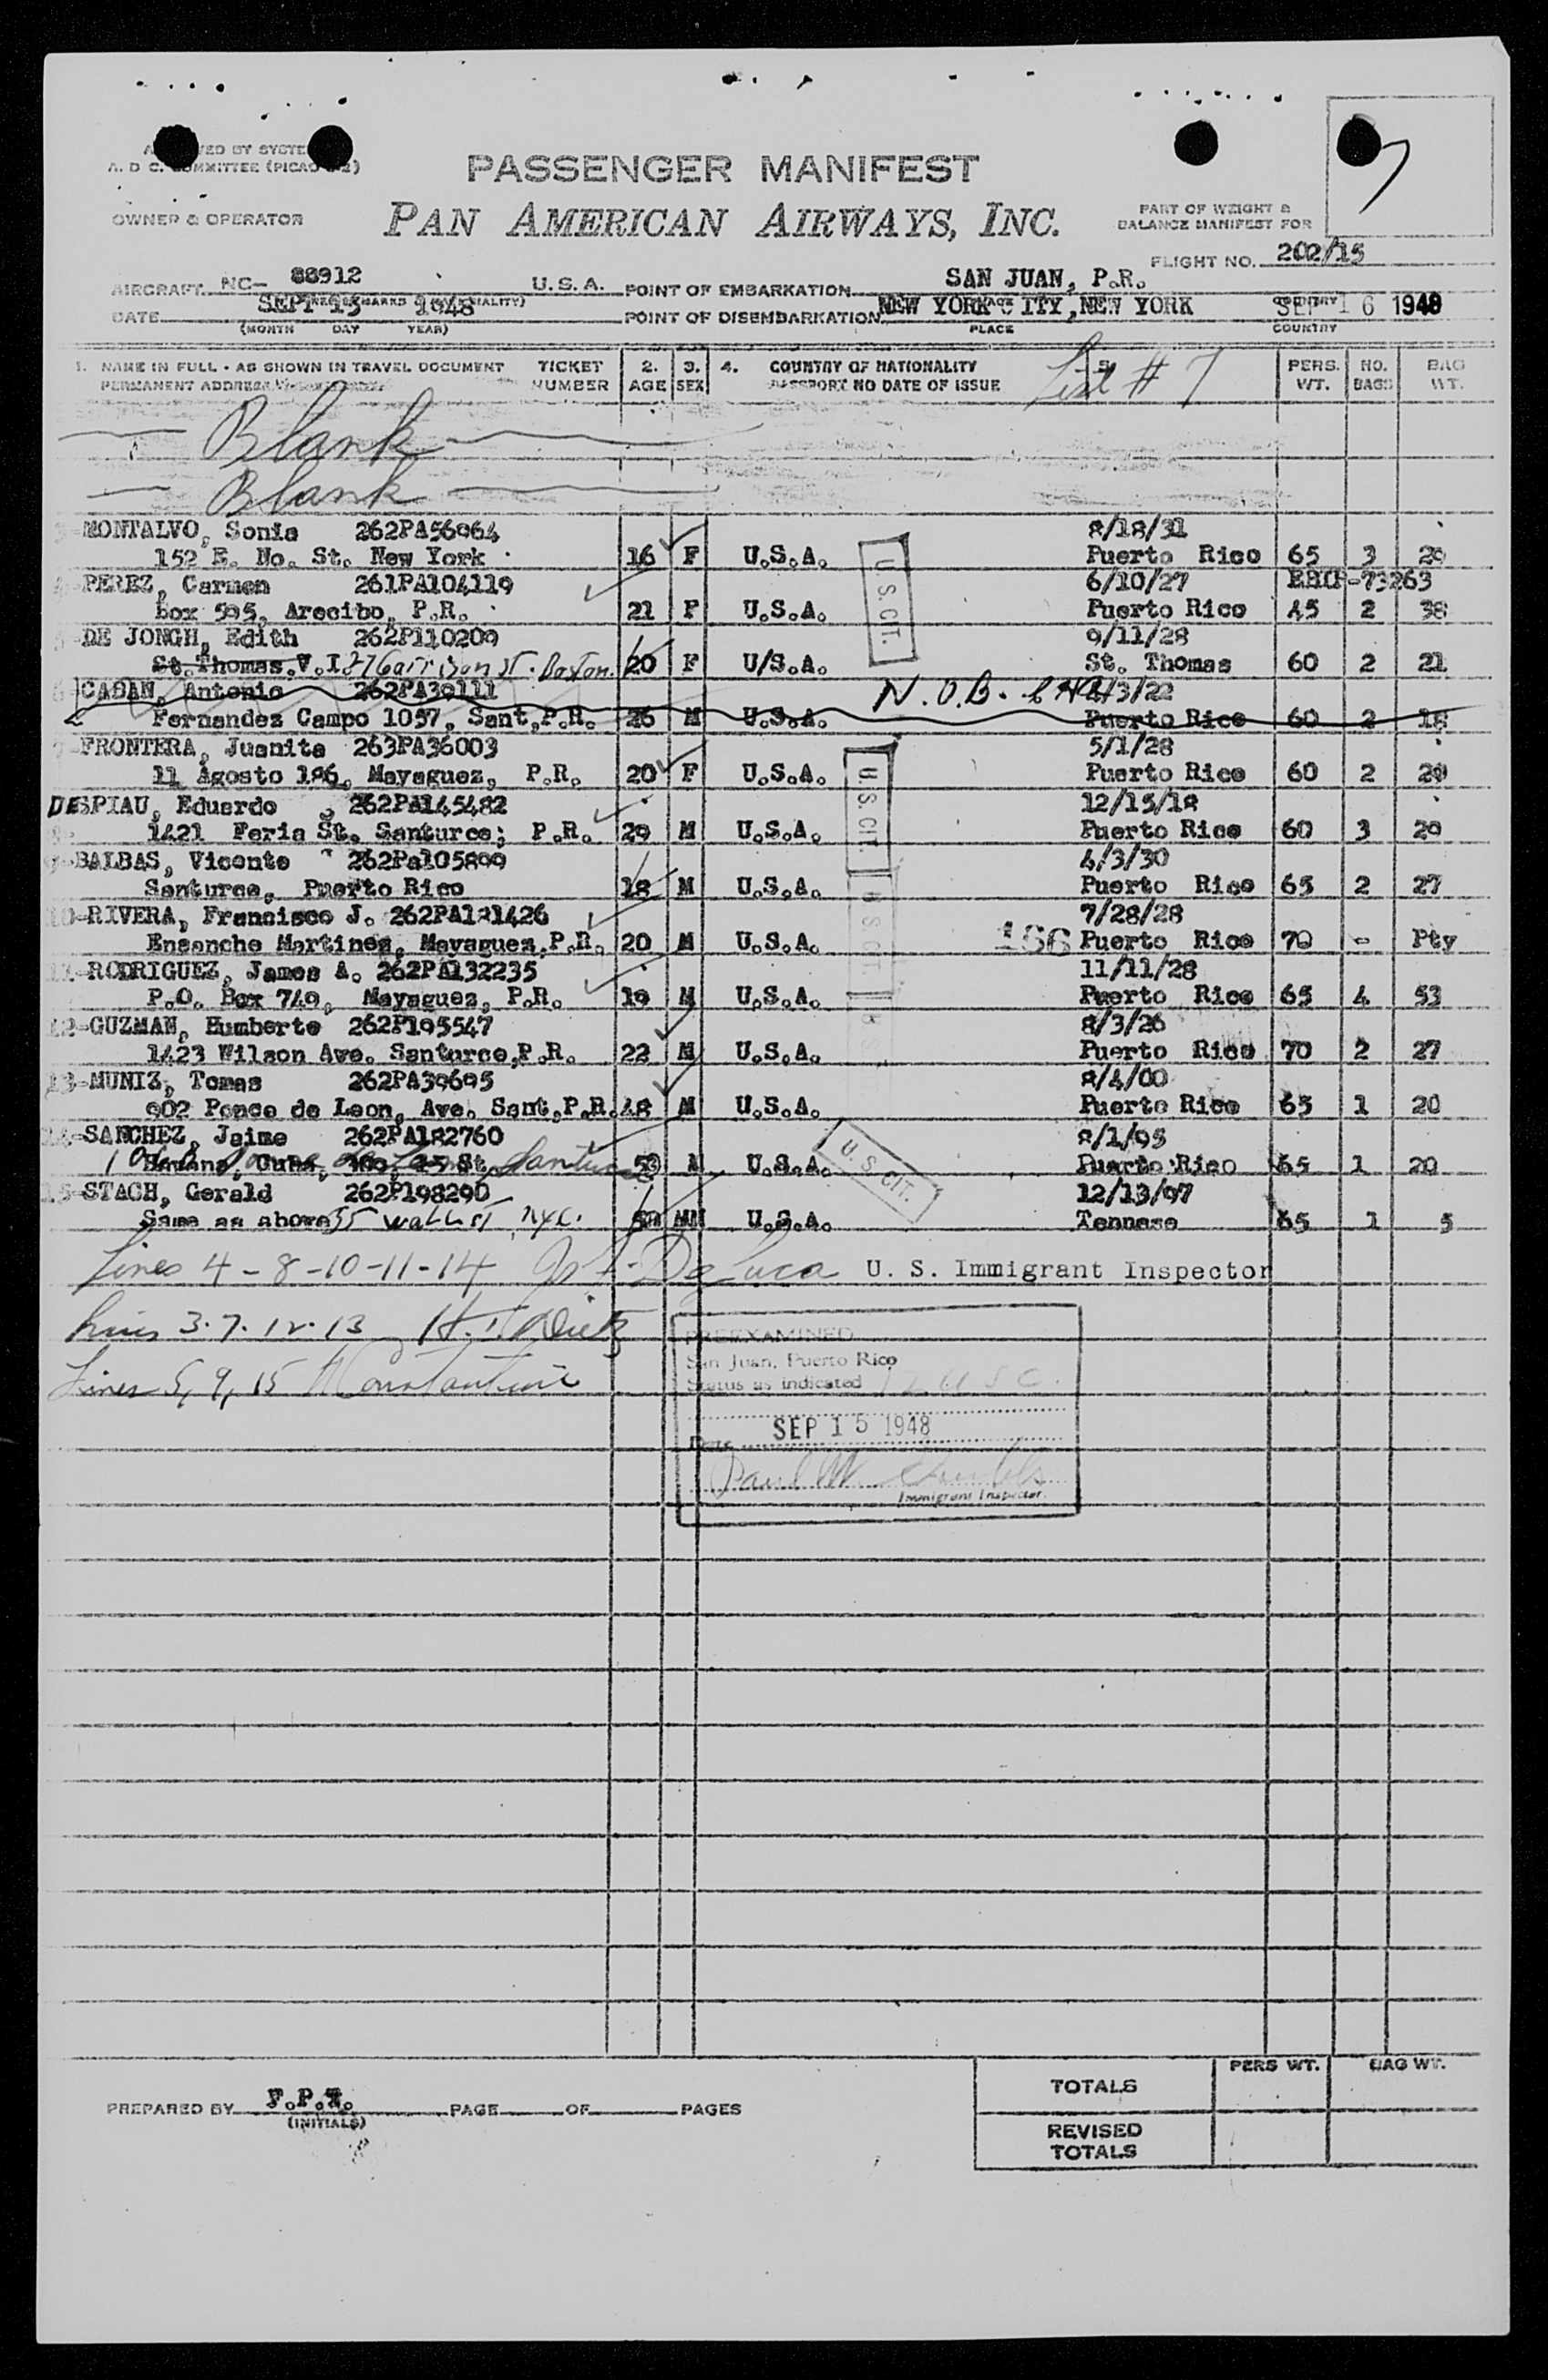 PASSENGER MANIFEST
OWNER & OPERATOR
PAN AMERICAN AIRWAYS, INC.
PART OF WEIGHT &
BALANCE MANIFEST FOR
7
FLIGHT NO. 202/15
AIRCRAFT NC- 88912 U.S.A. POINT OF EMBARKATION SAN JUAN, P.R.
DATE SEPT 15 1948 POINT OF DISEMBARKATION NEW YORK CITY, NEW YORK SEP 16 1948
(MONTH DAY YEAR) PLACE COUNTRY
1. NAME IN FULL - AS SHOWN IN TRAVEL DOCUMENT TICKET 2. 3. 4. COUNTRY OF NATIONALITY 5. PERS. NO. BAG
PERMANENT ADDRESS NUMBER AGE SEX PASSPORT NO DATE OF ISSUE List # 7 WT. BAGS WT.
Blank
Blank
3-MONTALVO, Sonia 262PA56964 8/18/31
152 E. No. St. New York 16 F U.S.A. Puerto Rico 65 3 29
4-PEREZ, Carmen 261PA104119 6/10/27 -73263
Box 595, Arecibo, P.R. 21 F U.S.A. Puerto Rico 45 2 38
5-DE JONGH, Edith 262P110209 9/11/28
St. Thomas, V.I. Boston. 20 F U/S.A. St. Thomas 60 2 21
6-CASAN, Antonio 262PA39111 N.O.B. /3/22
Fernandez Campo 1057, Sant, P.R. 26 M U.S.A. Puerto Rico 60 2 18
7-FRONTERA, Juanita 263PA36003 5/1/28
11 Agosto 186, Mayaguez, P.R. 20 F U.S.A. Puerto Rico 60 2 29
DESPIAU, Eduardo 262PA145482 12/15/18
8- 1421 Feria St. Santurce; P.R. 29 M U.S.A. Puerto Rico 60 3 29
9-BALBAS, Vicente 262Pa105899 4/3/30
Santurce, Puerto Rico 18 M U.S.A. Puerto Rico 65 2 27
10-RIVERA, Francisco J. 262PA181426 7/28/28
Ensanche Martinez, Mayaguez, P.R. 20 M U.S.A. 166 Puerto Rico 70 - Pty
11-RODRIGUEZ, James A. 262PA132235 11/11/28
P.O. Box 749, Mayaguez, P.R. 19 M U.S.A. Puerto Rico 65 4 53
12-GUZMAN, Humberto 262P195547 8/3/26
1423 Wilson Ave. Santurce, P.R. 22 M U.S.A. Puerto Rico 70 2 27
13-MUNIZ, Tomas 262PA39695 8/4/00
902 Ponce de Leon, Ave. Sant, P.R. 48 M U.S.A. Puerto Rico 65 1 20
14-SANCHEZ, Jaime 262PA182760 8/1/95
Havana, Cuba, St. Santurce 53 M U.S.A. Puerto Rico 65 1 20
15-STACH, Gerald 262P198290 12/13/97
Same as above 55 Wall St, NYC. 50 M U.S.A. Tennese 65 1 5
U.S.CIT.
U.S.CIT.
U.S.CIT.
Lines 4-8-10-11-14 De Luca U. S. Immigrant Inspector
Lines 3.7.12.13
Lines 5, 9, 15
PREEXAMINED
San Juan, Puerto Rico
Status as indicated 12 USC.
Date SEP 15 1948
Paul W.
Immigrant Inspector.
PERS WT. BAG WT.
TOTALS
PREPARED BY PAGE OF PAGES
(INITIALS)
REVISED
TOTALS